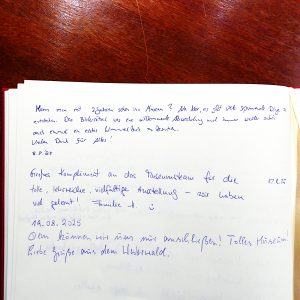 Kann man mit 2jährigen schon ins Museum? Na klar, es gibt viel spannende Dinge zu
entdecken. Das Bilderrätsel war eine willkommene Abwechslung und immer wieder schön
auch einmal ein
Vielen Dank für Alles!
Großes Kompliment an das Museumsteam für die
tolle, lehrreiche, vielfältige Ausstellung – wir haben
viel gelernt! Familie A. :)
19.08.2025
Dem können wir uns nur anschließen! Tolles Museum!
Liebe Grüße aus dem Westerwald.